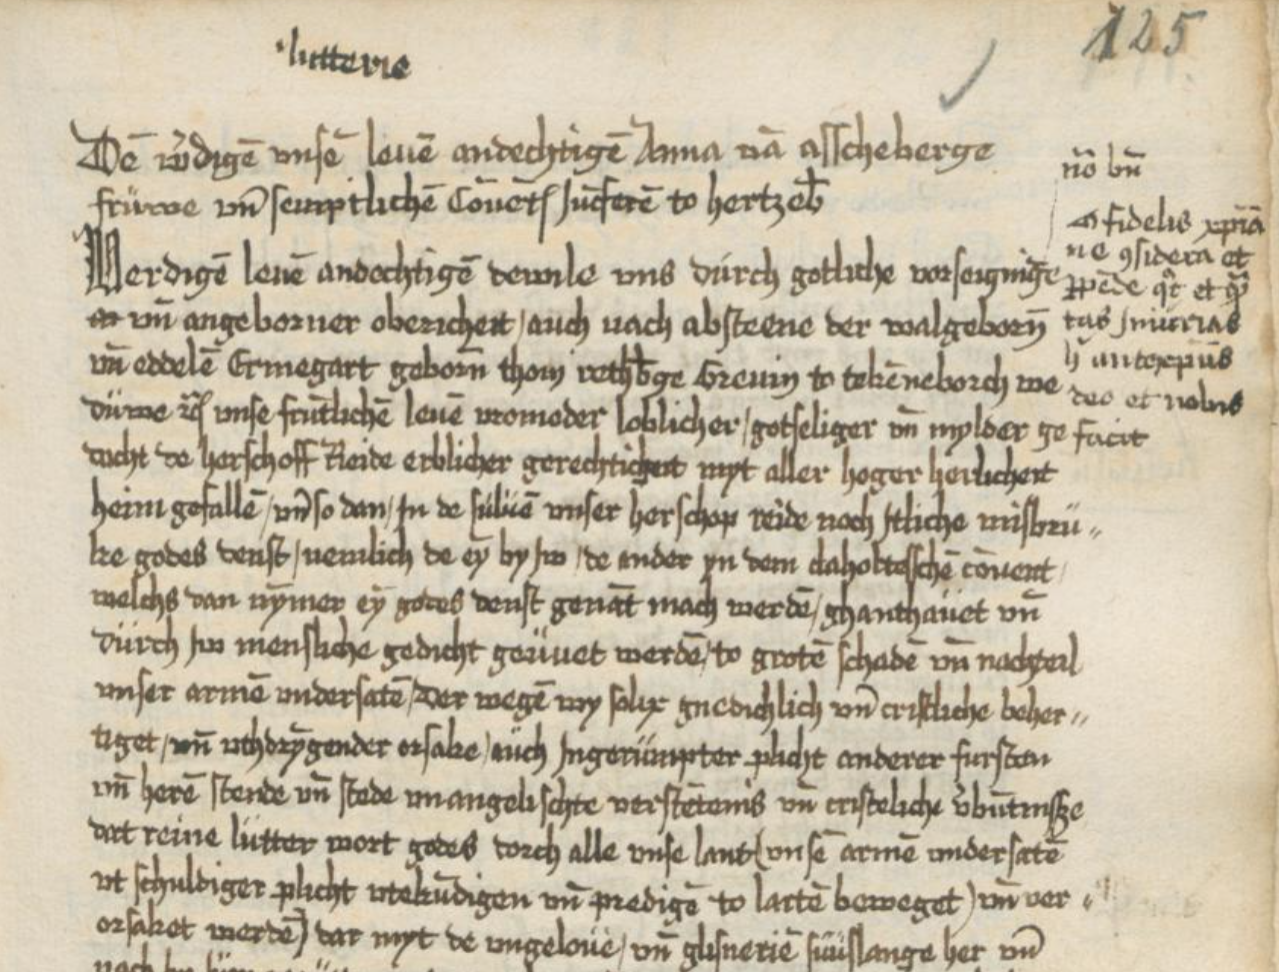 125
lutterie
Dē w̄digē vnsē leuē andechtigē Anna vā asscheberge
frūwe vn̄ semptlichē Cōuēt Jūcferē to hertzeb̄
Werdigē leuē andechtigē dewile vns dürch gotliche vorseigni͞ge
vn̄ angeborner oberichert / auch nach absteene der walgeborn̄
vn̄ eddelē Ermegart geborn̄ thom reth͞bge Greuin to tekēneborch we
düwe vnse frūtlichē leuē vromoder loblicher / gotseliger vn̄ mylder ge
dacht de herschoff Reide erblicher gerechticheit myt aller hoger herlicheit
heim gefallē / vn̄ so dan / Jn de süluē vnser herschop reide noch Jtliche misbrü„
ke godes denst / nemlich de eȳ by Jw / de ander yn dem daholtesschē cōuent /
welchs dan nȳmer eȳ godes denst genāt mach werdē / ghanthauet vn̄
dürch Jw mensliche gedicht geüuet werdē / to grotē schadē vn̄ nachteil
vnser armē vndersatē / Der wegē wy solix gnedichlich vn̄ cristliche beher„
tiget / vn̄ vthdrȳgender orsake / auch Jngerümpter plicht anderer fursten
vn̄ herē stende vn̄ stede vnangelischte verstētenis vn̄ cristeliche v̄būtnisze
dat reine lütter wort godes dorch alle vnse lant ( vnsē armē vndersatē
vt schuldiger plicht vtekūdigen vn̄ predigē to latē beweget ) vn̄ ver„
orsaket werdē ) dar myt de vngeloue / vn̄ glisneriē süüslange her vn̄
nō bn̄
O fidelis xp̄iā
ne 9sidera et
tas Jniūrias
hͥ antexp̄us
deo et nobis
facit